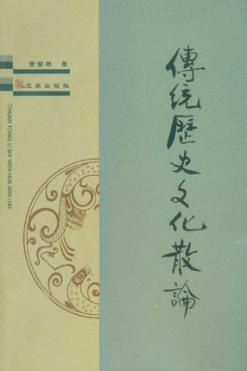 傳统歷史文化散論
黄留珠 著
三秦出版社
CHUAN TONG LI SHI WEN HUA SAN LUN